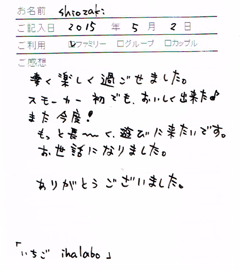 お名前 shiozaki
ご記入日 2015 年 5 月 2 日
ご利用 ☑ファミリー □グループ □カップル
ご感想
楽しく過ごせました。
スモーカー初でも、おいしく出来た♪
また今度!
もっと長〜く、遊びに来たいです。
お世話になりました。
ありがとうございました。
「いちご ihalabo」